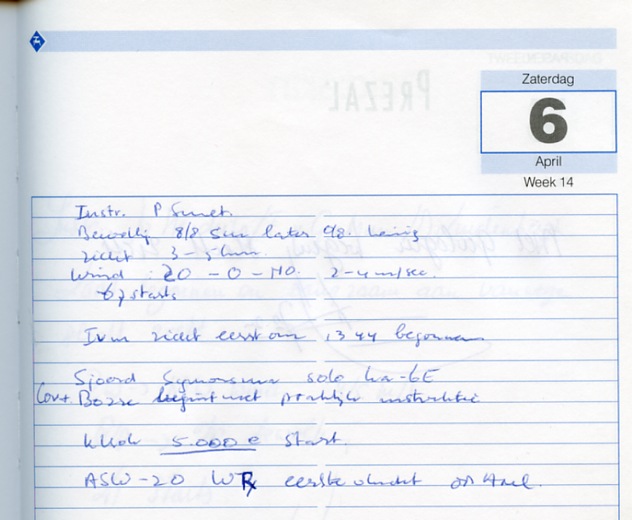 PREZAL
Zaterdag
6
April
Week 14
Instr. P Smet.
Bewolk. 8/8 5km later 0/8. heiig
zicht 3-5km.
Wind : ZO - O - NO. 2-4 m/sec.
67 starts
I.v.m zicht eerst om 1344 begonnen
Sjoerd solo Ka-6E
Bosse begint met praktijk instructie
5.000 e start.
ASW-20 eerste vlucht